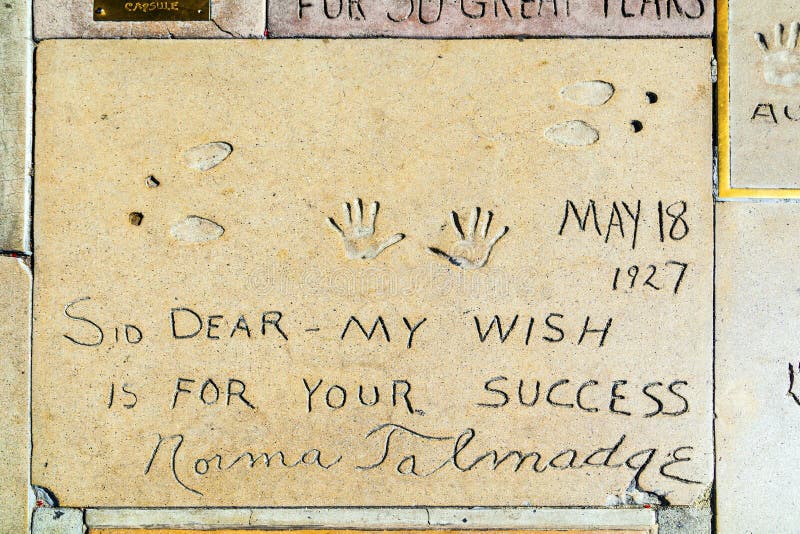 CAPSULE
FOR 30 GREAT YEARS
AU
MAY 18
1927
SID DEAR - MY WISH
IS FOR YOUR SUCCESS
Norma Talmadge